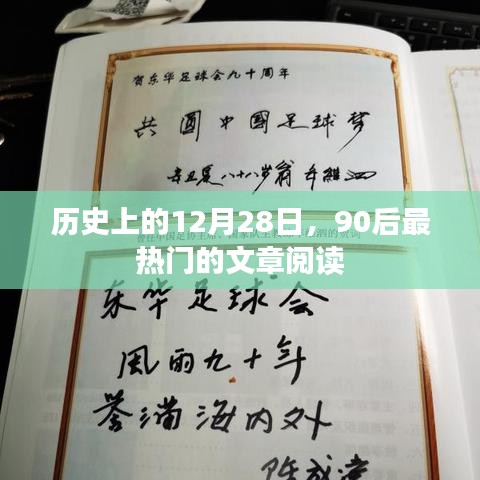 贺东华足球会九十周年
共圆中国足球梦
辛丑夏八十八岁翁年維泗
历史上的12月28日，90后最
热门的文章阅读
东华足球会
風雨九十年
誉满海内外
陈成達